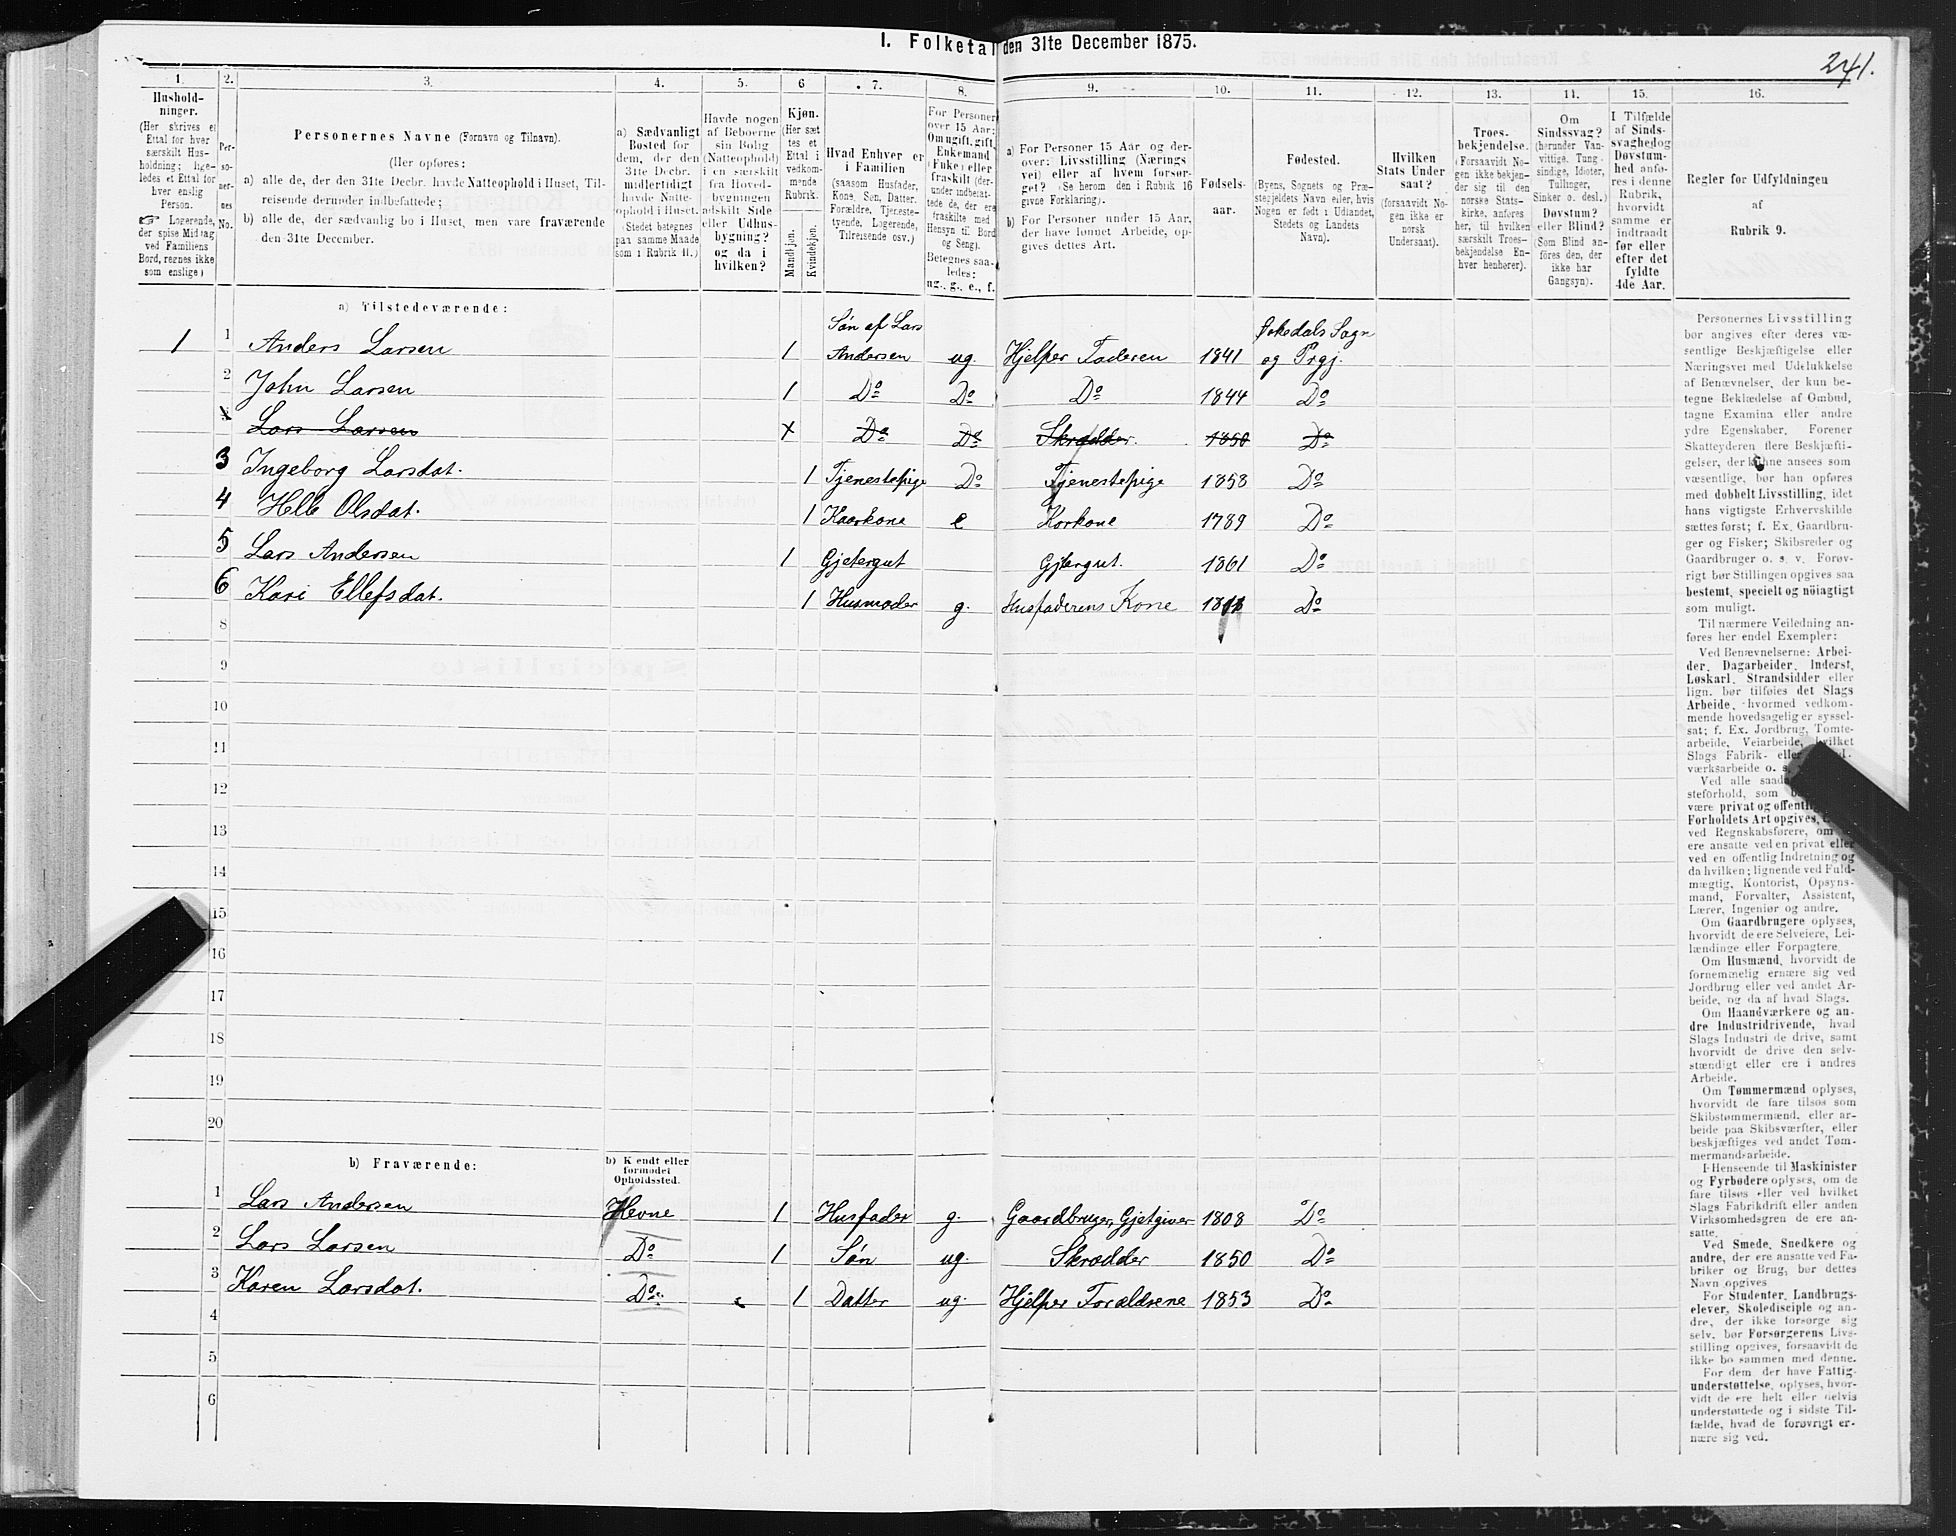 I. Folketal den 31te December 1875.
241.
1. 2. 3. 4. 5. 6 7. 8. 9. 10. 11. 12. 13. 14. 15. 16.
Hushold-
ninger.
(Her skrives et
Ettal for hver
særskilt Hus-
holdning; lige-
ledes et Ettal for
hver enslig
Person.
☞ Logerende,
der spise Middag
ved Familiens
Bord, regnes ikke
som enslige)
Per-
so-
ner-
nes
No.
Personernes Navne (Fornavn og Tilnavn).
(Her opføres:
a) alle de, der den 31te Decbr. havde Natteophold i Huset, Til-
reisende derunder indbefattede;
b) alle de, der sædvanlig bo i Huset, men vare fraværende
den 31te December.
a) Sædvanligt
Bosted for
dem, der den
31te Decbr.
midlertidigt
havde Natte-
ophold i Huset.
(Stedet betegnes
paa samme Maade
som i Rubrik 11.)
Havde nogen
af Beboerne
sin Bolig
(Natteophold)
i en særskilt
fra Hoved-
bygningen
adskilt Side-
eller Udhus-
bygning?
og da i
hvilken?
Kjøn.
(Her sæt-
tes et
Ettal i
vedkom-
mende
Rubrik.
Mandkjøn.
Kvindekjøn.
Hvad Enhver er
i Familien
(saasom Husfader,
Kone, Søn, Datter,
Forældre, Tjeneste-
tyende, Logerende,
Tilreisende osv.)
For Personer
over 15 Aar:
Om ugift, gift,
Enkemand
(Enke) eller
fraskilt (der-
under indbefat-
tede de, der ere
fraskilte med
Hensyn til Bord
og Seng).
Betegnes saa-
ledes:
ug., g., e., f.
a) For Personer 15 Aar og der-
over: Livsstilling (Nærings-
vei) eller af hvem forsør-
get? (Se herom den i Rubrik 16
givne Forklaring).
b) For Personer under 15 Aar,
der have lønnet Arbeide, op-
gives dettes Art.
Fødsels-
aar.
Fødested.
(Byens, Sognets og Præ-
stegjeldets Navn eller, hvis
Nogen er født i Udlandet,
Stedets og Landets
Navn).
Hvilken
Stats Under-
saat?
(forsaavidt No-
gen ikke er
norsk
Undersaat).
Troes-
bekjendelse.
(Forsaavidt No-
gen ikke bekjen-
der sig til den
norske Stats-
kirke, anføres
her, til hvilken
særskilt Troes-
bekjendelse En-
hver henhører).
Om
Sindssvag?
(herunder Van-
vittige, Tung-
sindige, Idioter,
Tullinger,
Sinker o. desl.)
Døvstum?
eller Blind?
(Som Blind an-
föres den, der
ikke har
Gangsyn).
I Tilfælde
af Sinds-
svaghed og
Døvstum-
hed anfø-
res i denne
Rubrik,
hvorvidt
samme er
indtraadt
før eller
efter det
fyldte
4de Aar.
Regler for Udfyldningen
af
Rubrik 9.
a) Tilstedeværende:
1 1 Anders Larsen 1 Søn af Lars Andersen ug Hjelper Faderen 1841 Ørkedals Sogn og Prgj.
2 John Larsen 1 Do Do Do 1844 Do
Lars Larsen Do Do Skrædder. 1850 Do
3 Ingeborg Larsdat. 1 Tjenestepige Do Tjenestepige 1858 Do
4 Helle Olsdat. 1 Kaarkone e Korkone 1789 Do
5 Lars Andersen 1 Gjetergut Gjtergut. 1861 Do
6 Kari Ellefsdat. 1 Husmoder g. Husfaderens Kone Do
8
9
10
11
12
13
14
15
16
17
18
19
20
b) Fraværende:
b) Kjendt eller
formodet
Opholdssted.
1 Lars Andersen Hevne 1 Husfader g. Gaardbruger, Gjetgiver 1808 Do
2 Lars Larsen Do 1 Søn ug. Skrædder 1850 Do
3 Karen Larsdat. Do 1 Datter ug. Hjelper Forældrene 1853 Do
4
5
6
Personernes Livsstilling
bør angives efter deres væ-
sentlige Beskjæftigelse eller
Næringsvei med Udelukkelse
af Benævnelser, der kun be-
tegne Beklædelse af Ombud,
tagne Examina eller andre
ydre Egenskaber. Forener
Skatteyderen flere Beskjæfti-
gelser, der kunne ansees som
væsentlige, bør han opføres
med dobbelt Livsstilling, idet
hans vigtigste Erhvervskilde
sættes først; f. Ex. Gaardbru-
ger og Fisker; Skibsreder og
Gaardbruger o. s. v. Forøv-
rigt bør Stillingen opgives saa
bestemt, specielt og nöiagtigt
som muligt.
Til nærmere Veiledning an-
føres her endel Exempler:
Ved Benævnelserne: Arbei-
der, Dagarbeider, Inderst,
Løskarl, Strandsidder eller
lign. bør tilføies det Slags
Arbeide, hvormed vedkom-
mende hovedsagelig er syssel-
sat; f. Ex. Jordbrug, Tomte-
arbeide, Veiarbeide, hvilket
Slags Fabrik- eller
værksarbeide o. s.
Ved alle saad
steforhold, som
være privat og offentli
Forholdets Art opgives,
ved Regnskabsførere, om
ere ansatte ved en privat eller
ved en offentlig Indretning og
da hvilken; lignende ved Fuld-
mægtig, Kontorist, Opsyns-
mand, Forvalter, Assistent,
Lærer, Ingeniør og andre.
Om Gaardbrugere oplyses,
hvorvidt de ere Selveiere, Lei-
lændinge eller Forpagtere.
Om Husmænd, hvorvidt de
fornemmelig ernære sig ved
Jordbrug eller ved andet Ar-
beide, og da af hvad Slags.
Om Haandværkere og an-
dre Industridrivende, hvad
Slags Industri de drive, samt
hvorvidt de drive den selv-
stændigt eller ere i andres
Arbeide.
Om Tømmermænd oplyses,
hvorvidt de fare tilsøs som
Skibstømmermænd, eller ar-
beide paa Skibsværfter, eller
beskjæftiges ved andet Tøm-
mermandsarbeide.
I Henseende til Maskinister
og Fyrbødere oplyses, om de
fare tilsøs eller ved hvilket
Slags Fabrikdrift eller anden
Virksomhedsgren de ere an-
satte.
Ved Smede, Snedkere og
andre, der ere ansatte ved Fa-
briker og Brug, bør dettes
Navn opgives.
For Studenter, Landbrugs-
elever, Skoledisciple og an-
dre, der ikke forsørge sig
selv, bør Forsørgerens Livs-
stilling opgives, forsaavidt de
ikke bo sammen med denne.
For dem, der have Fattig-
understøttelse, oplyses, hvor-
vidt de ere helt eller delvis
understøttede og i sidste Til-
fælde, hvad de forøvrigt er-
nære sig ved.